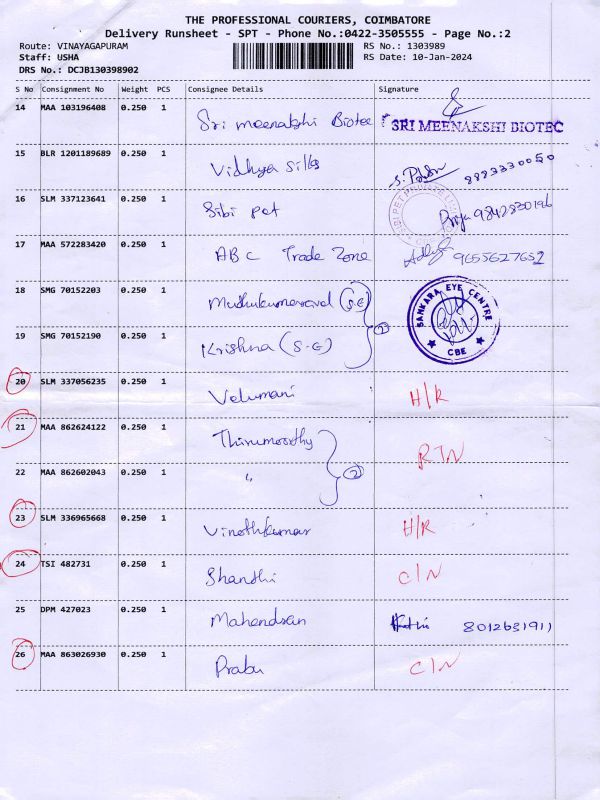 THE PROFESSIONAL COURIERS, COIMBATORE
Delivery Runsheet - SPT - Phone No.:0422-3505555 - Page No.:2
Route: VINAYAGAPURAM RS No.: 1303989
Staff: USHA RS Date: 10-Jan-2024
DRS No.: DCJB130398902
S No Consignment No Weight PCS Consignee Details Signature
14 MAA 103196408 0.250 1 Sri meenakshi Biotec SRI MEENAKSHI BIOTEC
15 BLR 1201189689 0.250 1 Vidhya silks 8883330050
16 SLM 337123641 0.250 1 Sibi pet SIBI PET PRIVATE Priya 9842830196
17 MAA 572283420 0.250 1 ABC Trade Zone 9655627652
18 SMG 70152203 0.250 1 (S.E) SANKARA EYE CENTRE CBE
19 SMG 70152190 0.250 1 Krishna (S.E) 2
20 SLM 337056235 0.250 1 Velumani H/R
21 MAA 862624122 0.250 1 Thirumoorthy RTN
22 MAA 862602043 0.250 1 " 2
23 SLM 336965668 0.250 1 Vinothkumar H/R
24 TSI 482731 0.250 1 Shanthi C/N
25 DPM 427023 0.250 1 Mahendran 8012631911
26 MAA 863026930 0.250 1 Prabu C/N